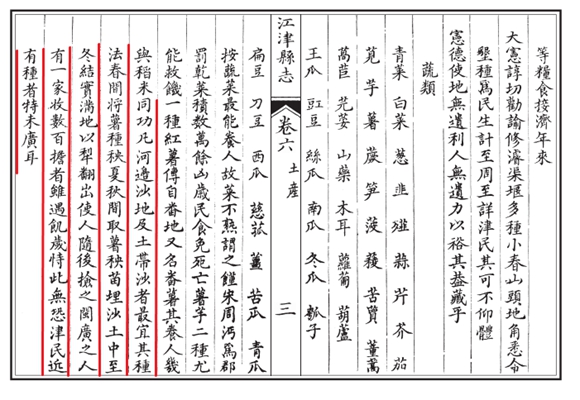 等糧食接濟年來
大憲諄切勸諭修濬渠堰多種小春山頭地角悉令
墾種爲民生計至周至詳津民其可不仰體
憲德使地無遺利人無遺力以裕其蓋藏乎
蔬類
青菜 白菜 葱 韭 蒜 芹 芥 茄
莧 芋 薯 蕨 笋 菠 苦蕒 蒿
萵苣 芫荽 山藥 木耳 蘿蔔 葫蘆
王瓜 豇豆 絲瓜 南瓜 冬瓜 瓠子
江津縣志 卷六 土産 三
扁豆 刀豆 西瓜 慈菰 薑 苦瓜 青瓜
按蔬菜最能養人故菜不熟謂之饉宋周沔爲郡
罰乾菜積數萬餘凶歲民食免死亡薯芋二種尤
能救饑一種紅薯傳自畨地又名畨薯其養人幾
與稻米同功凡河邉沙地及土帶沙者最宜其種
法春間将薯種秧夏秋間取薯秧苗埋沙土中至
冬結實滿地以犂翻出使人隨後搶之閩廣之人
有一家收數百擔者雖遇飢歲恃此無恐津民近
有種者特未廣耳